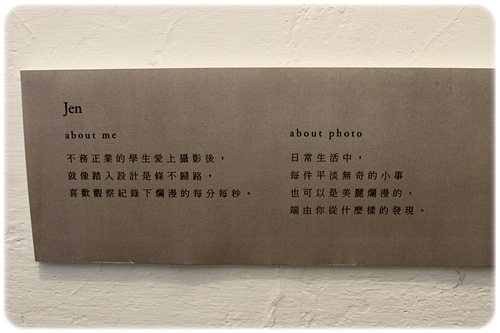 Jen
about me
不務正業的學生愛上攝影後，
就像踏入設計是條不歸路，
喜歡觀察紀錄下爛漫的每分每秒。
about photo
日常生活中，
每件平淡無奇的小事
也可以是美麗爛漫的，
端由你從什麼樣的發現。